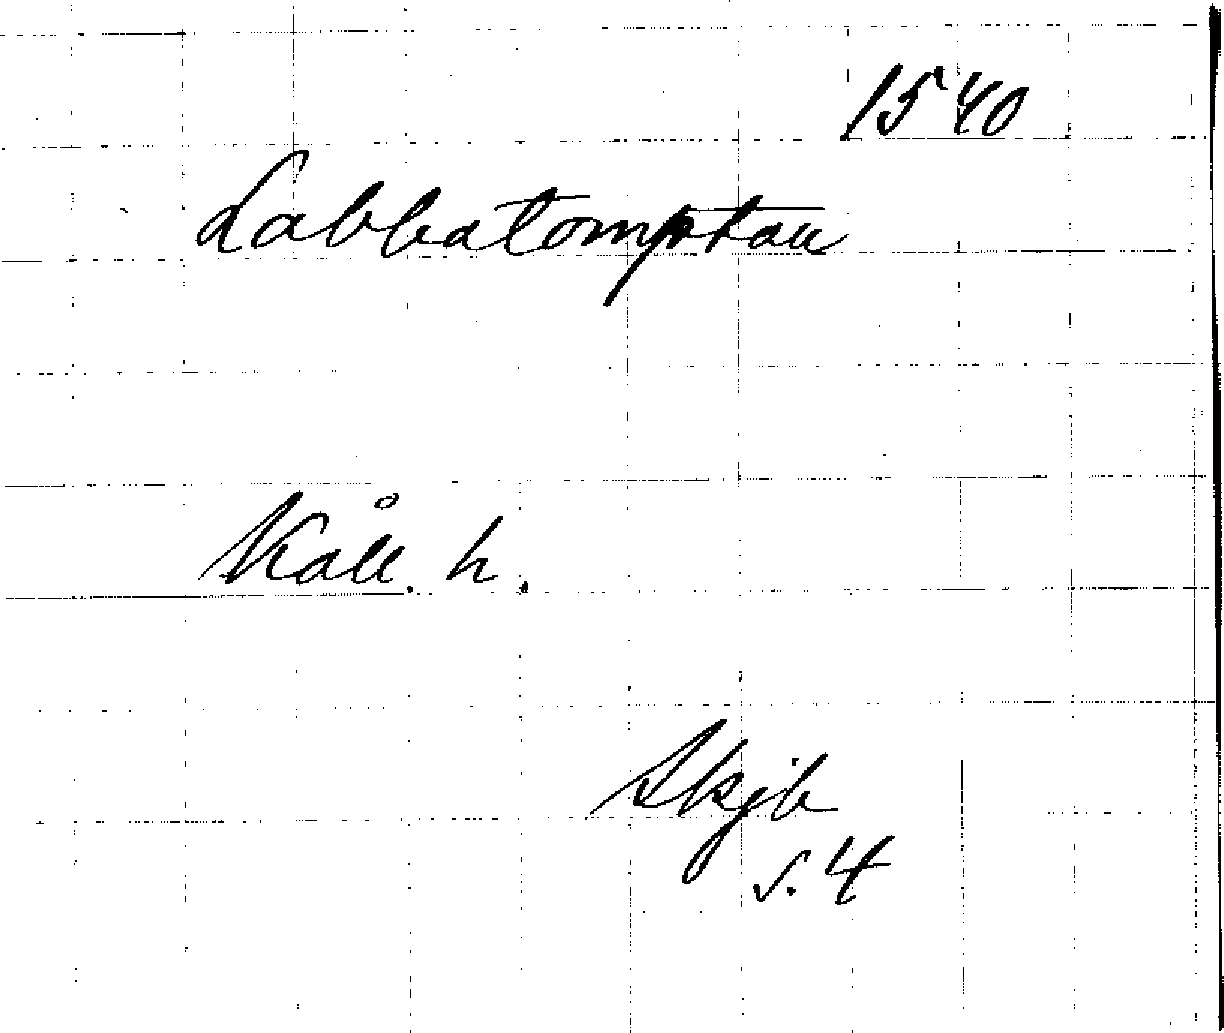 1540
Labbatomptan
Kåll. h.
Skjb
s. 4